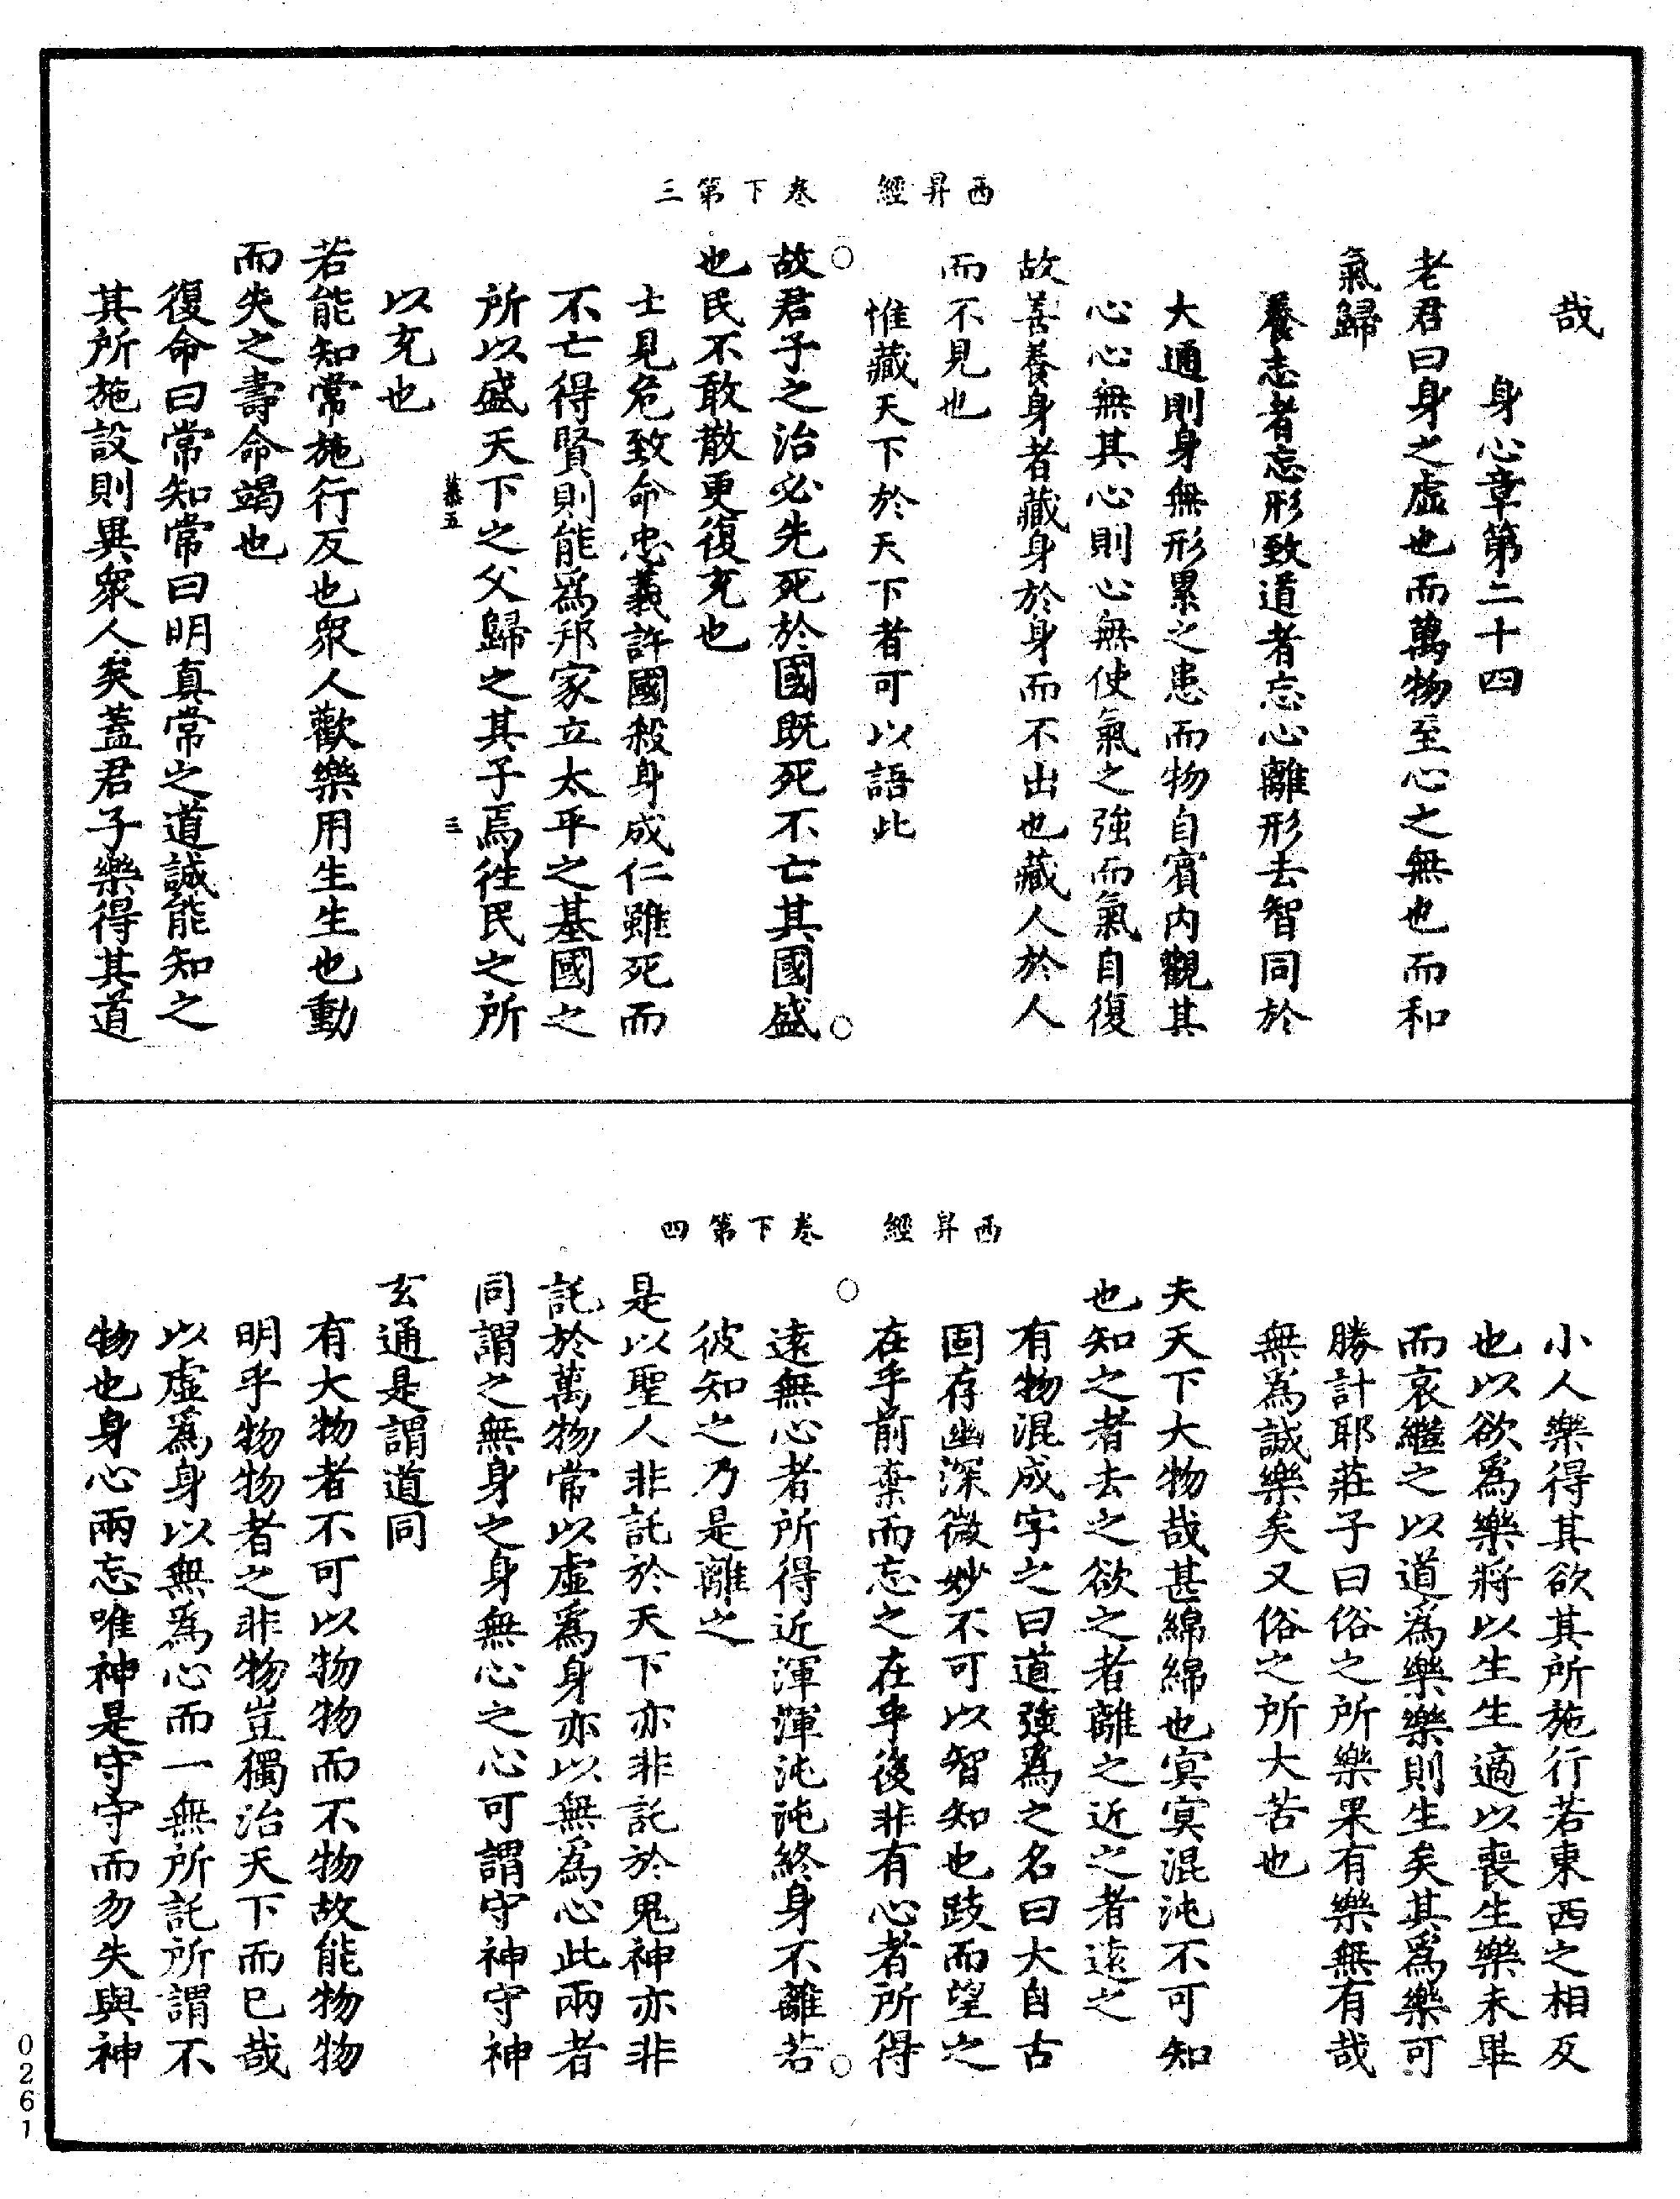 西昇經　卷下第三
哉
身心章第二十四
老君曰身之虛也而萬物至心之無也而和
氣歸
養志者忘形致道者忘心離形去智同於
大通則身無形累之患而物自賓內觀其
心心無其心則心無使氣之強而氣自復
故善養身者藏身於身而不出也藏人於人
而不見也
惟藏天下於天下者可以語此
○○
故君子之治必先死於國既死不亡其國盛
也民不敢散更復充也
士見危致命忠義許國殺身成仁雖死而
不亡得賢則能爲邦家立太平之基國之
所以盛天下之父歸之其子焉徃民之所
慕五　三
以充也
若能知常施行反也衆人歡樂用生生也動
而失之壽命竭也
復命曰常知常曰明真常之道誠能知之
其所施設則異衆人矣蓋君子樂得其道
西昇經　卷下第四
小人樂得其欲其所施行若東西之相反
也以欲爲樂將以生生適以喪生樂未畢
而哀繼之以道爲樂樂則生矣其爲樂可
勝計耶莊子曰俗之所樂果有樂無有哉
無爲誠樂矣又俗之所大苦也
夫天下大物哉甚綿綿也冥冥混沌不可知
也知之者去之欲之者離之近之者遠之
有物混成字之曰道強爲之名曰大自古
固存幽深微妙不可以智知也跂而望之
在乎前棄而忘之在乎後非有心者所得
○○
遠無心者所得近渾渾沌沌終身不離若
彼知之乃是離之
是以聖人非託於天下亦非託於鬼神亦非
託於萬物常以虛爲身亦以無爲心此兩者
同謂之無身之身無心之心可謂守神守神
玄通是謂道同
有大物者不可以物物而不物故能物物
明乎物物者之非物豈獨治天下而已哉
以虛爲身以無爲心而一無所託所謂不
物也身心兩忘唯神是守守而勿失與神
0261